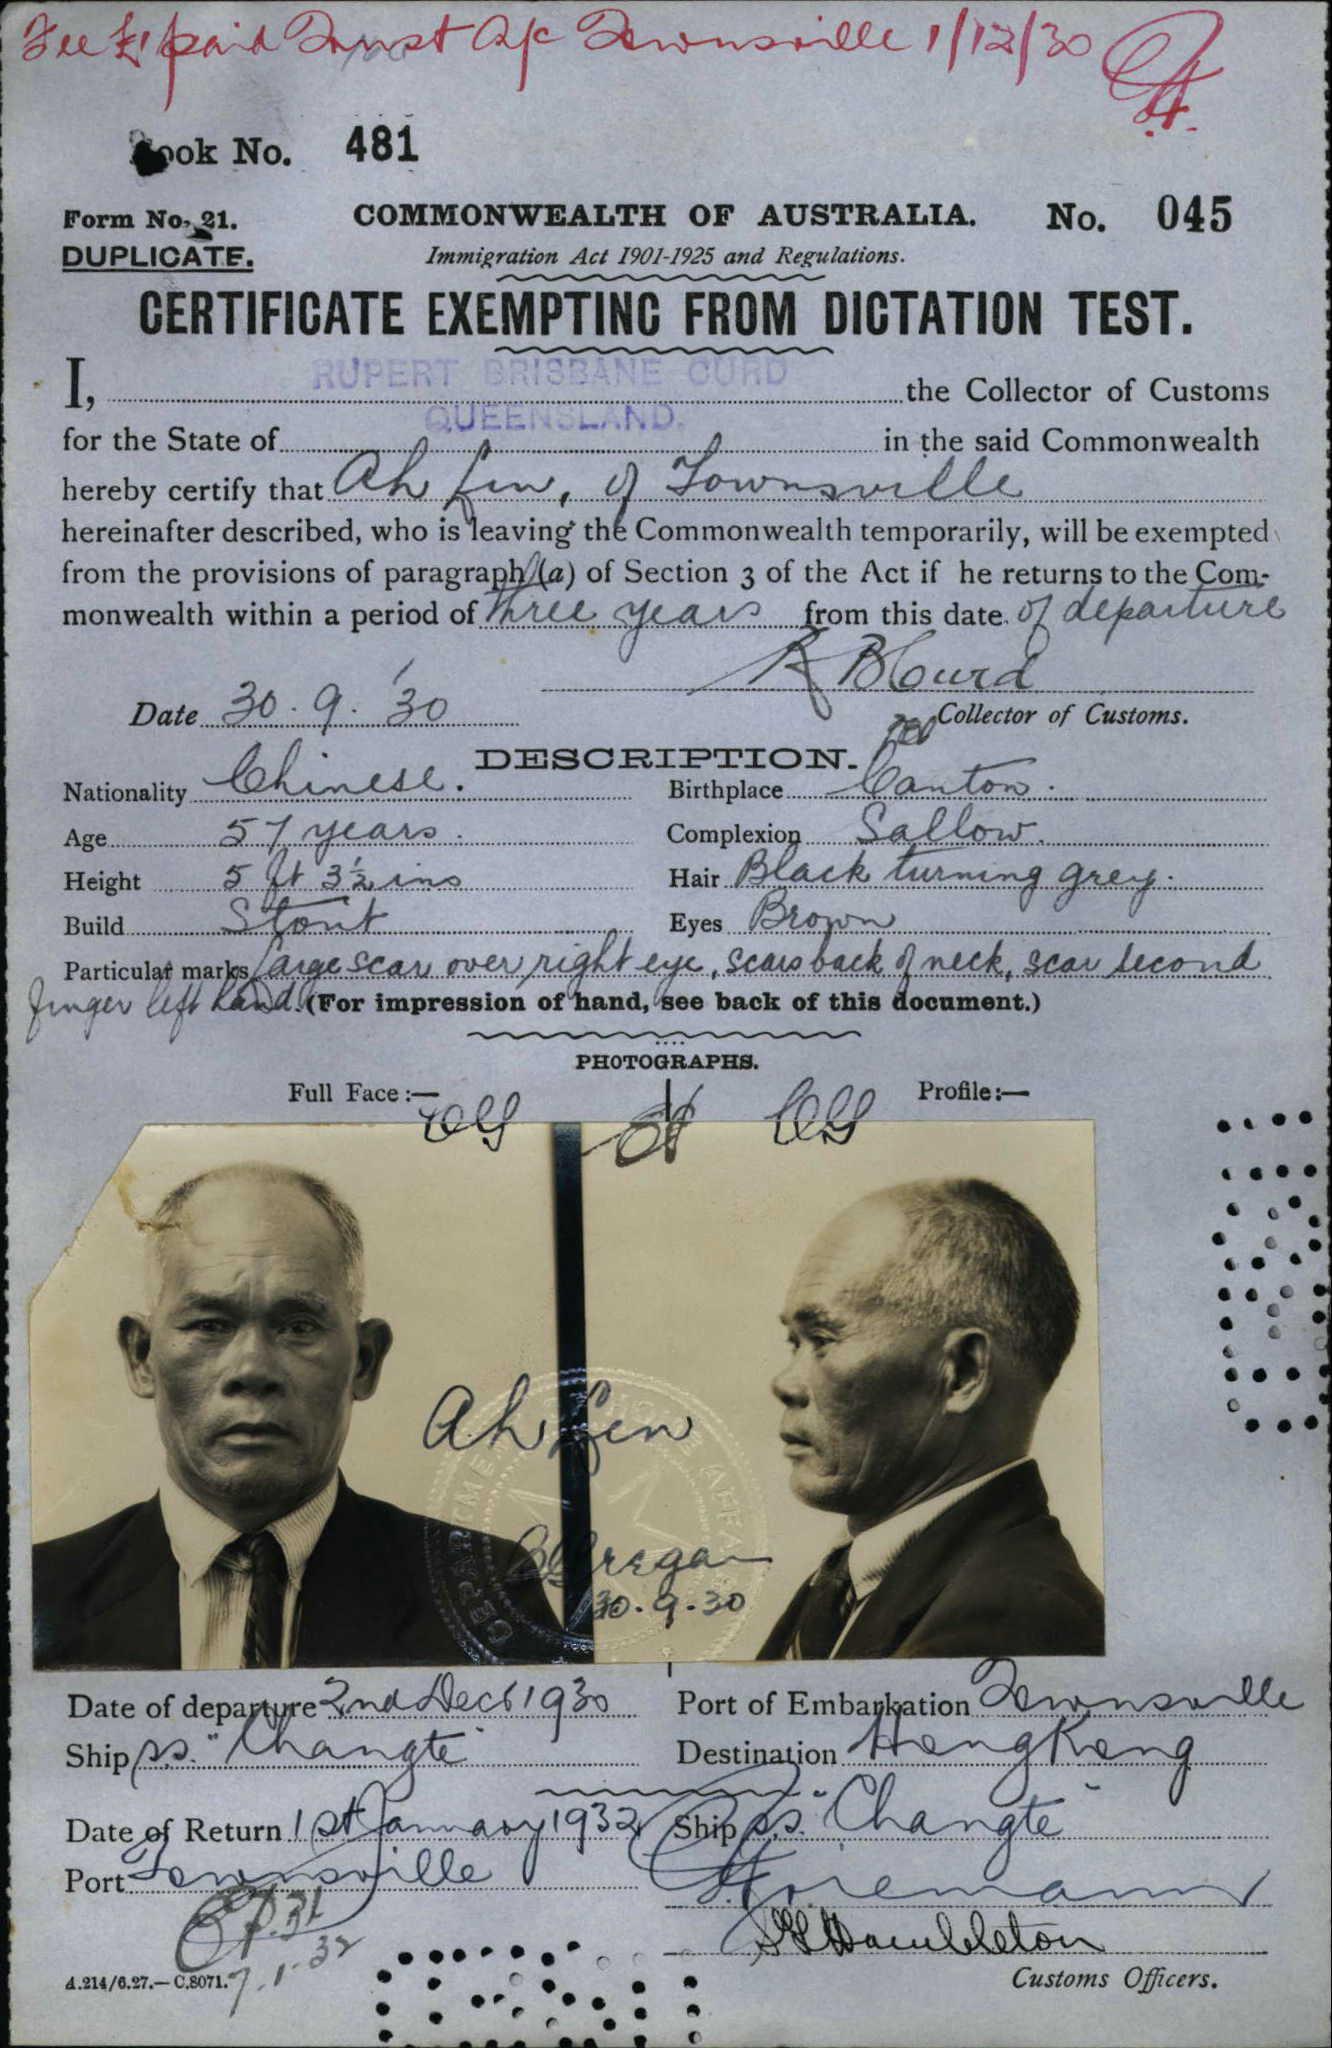 Fee £1 paid Trust A/c Townsville 1/12/30
Book No. 481
Form No. 21. COMMONWEALTH OF AUSTRALIA. No. 045
DUPLICATE. Immigration Act 1901-1925 and Regulations.
CERTIFICATE EXEMPTING FROM DICTATION TEST.
RUPERT BRISBANE CURD
I, the Collector of Customs
QUEENSLAND.
for the State of in the said Commonwealth
hereby certify that Ah Fin, of Townsville
hereinafter described, who is leaving the Commonwealth temporarily, will be exempted
from the provisions of paragraph (a) of Section 3 of the Act if he returns to the Com-
monwealth within a period of three years from this date of departure
R B Curd
Date 30.9.'30 Collector of Customs.
DESCRIPTION.
Nationality Chinese. Birthplace Canton.
Age 57 years. Complexion Sallow.
Height 5 ft 3½ ins Hair Black turning grey.
Build Stout Eyes Brown
Particular marks large scar over right eye, scars back of neck, scar second
finger left hand. (For impression of hand, see back of this document.)
PHOTOGRAPHS.
Full Face:— Profile:—
Ah Fin
30.9.30
Date of departure 2nd Dec 1930 Port of Embarkation Townsville
Ship s.s. "Changte" Destination Hong Kong
Date of Return 1st January 1932 Ship s.s. "Changte"
Port Townsville
7.1.32
Hambleton
A.214/6.27.—C.8071. Customs Officers.